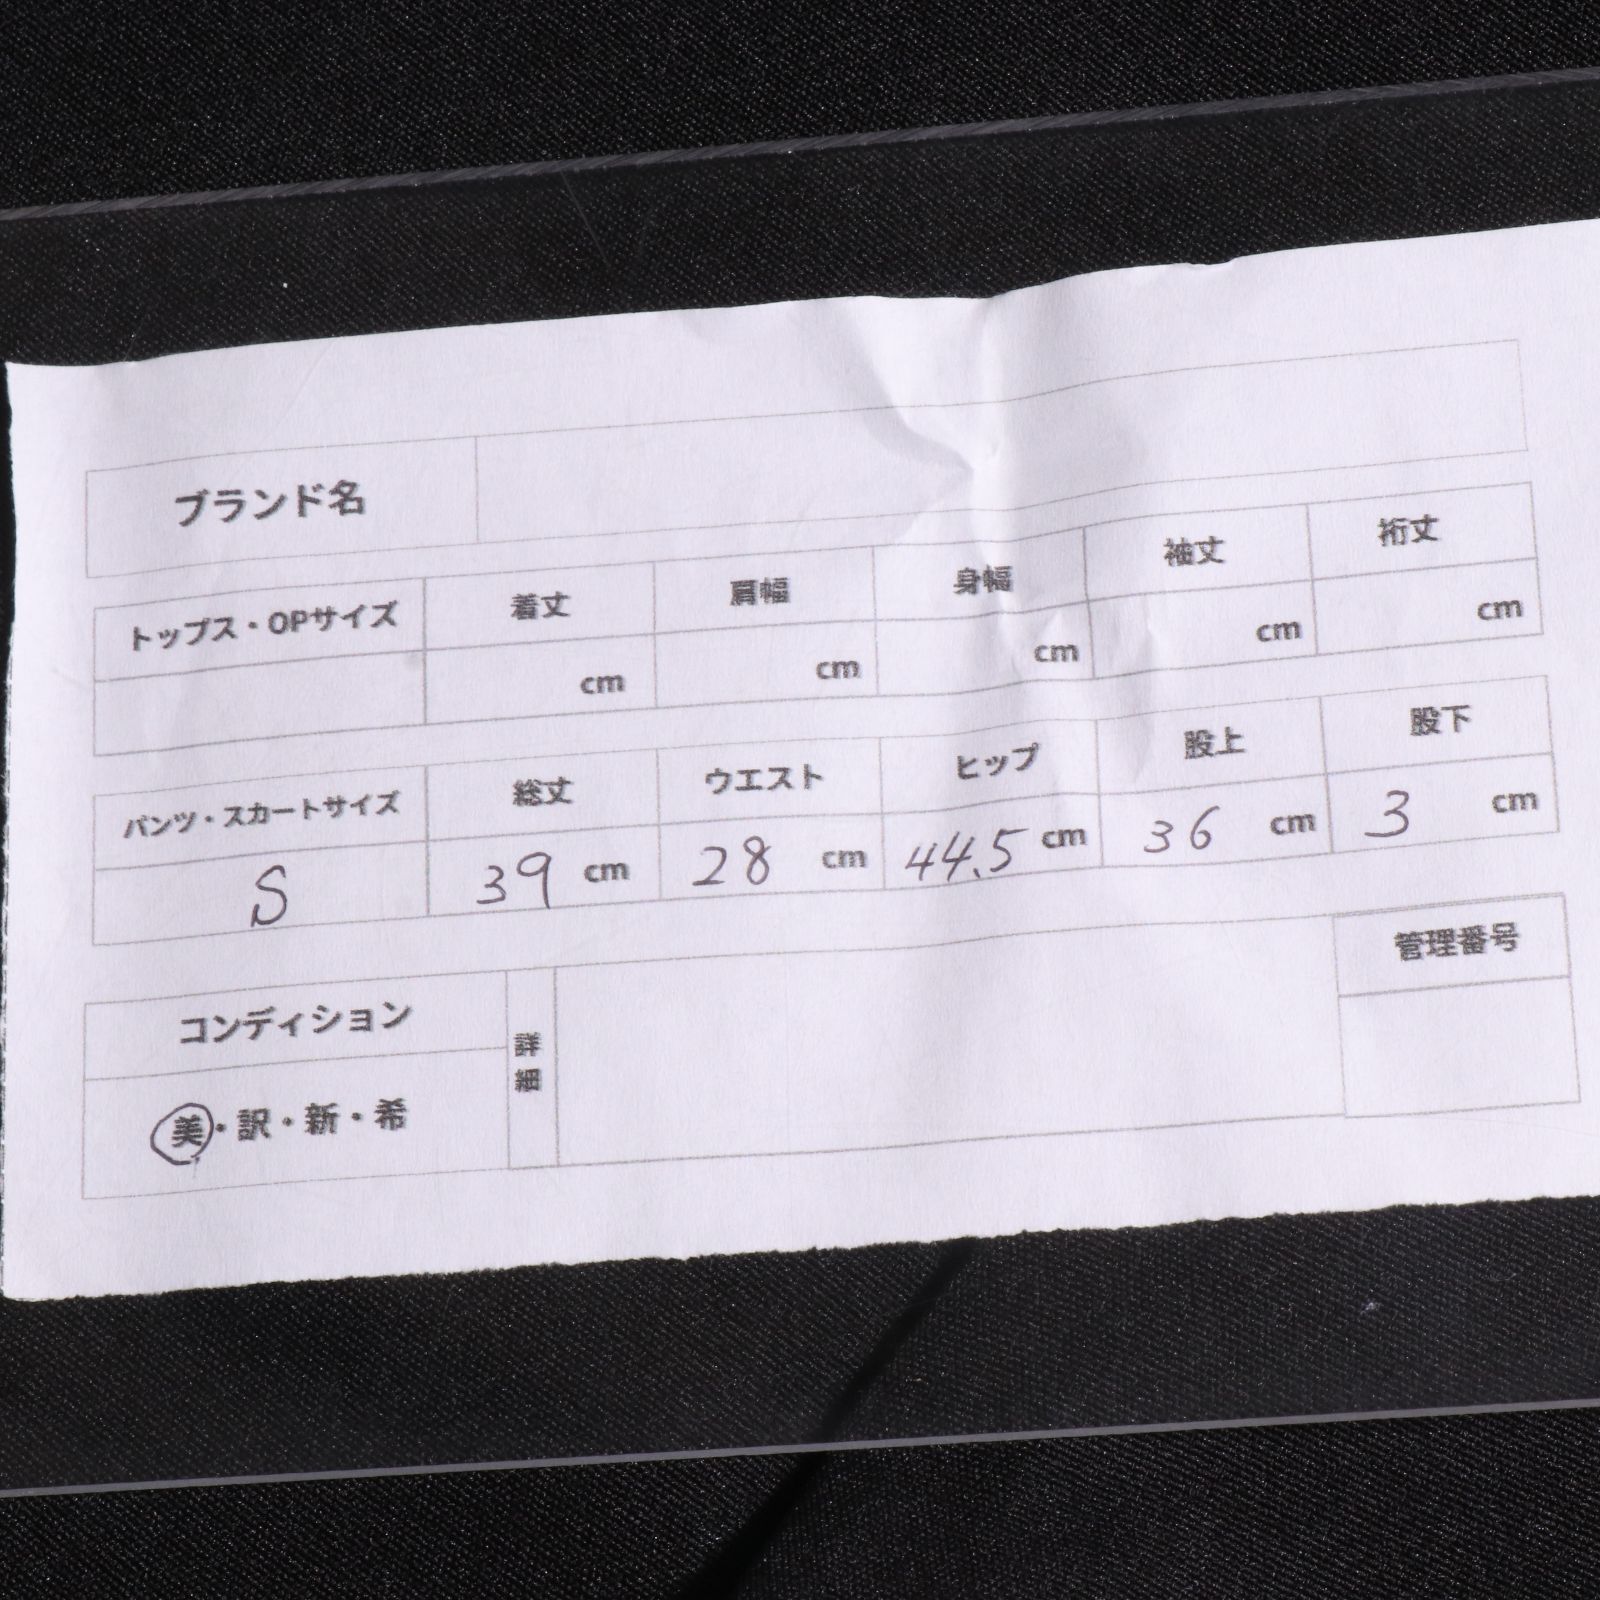 ブランド名
トップス・OPサイズ 着丈 肩幅 身幅 袖丈 裄丈
cm cm cm cm cm
パンツ・スカートサイズ 総丈 ウエスト ヒップ 股上 股下
S 39 cm 28 cm 44.5 cm 36 cm 3 cm
コンディション 詳細 管理番号
美・訳・新・希